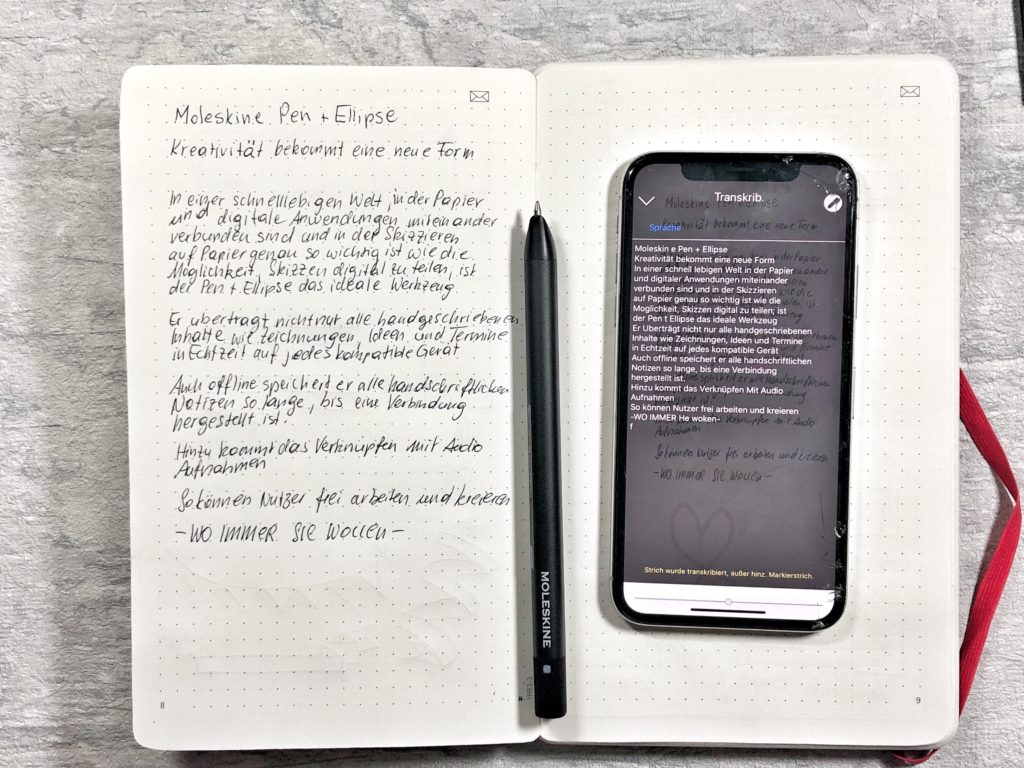 Moleskine Pen + Ellipse
Kreativität bekommt eine neue Form
In einer schnelllebigen Welt, in der Papier
und digitale Anwendungen miteinander
verbunden sind und in der Skizzieren
auf Papier genau so wichtig ist wie die
Möglichkeit, Skizzen digital zu teilen, ist
der Pen + Ellipse das ideale Werkzeug.
Er überträgt nicht nur alle handgeschriebenen
Inhalte wie Zeichnungen, Ideen und Termine
in Echtzeit auf jedes kompatible Gerät
Auch offline speichert er alle handschriftlichen
Notizen so lange, bis eine Verbindung
hergestellt ist.
Hinzu kommt das Verknüpfen mit Audio
Aufnahmen
So können Nutzer frei arbeiten und kreieren
-WO IMMER SIE WOLLEN-
8
MOLESKINE
Transkrib.
Sprache
Moleskin e Pen + Ellipse
Kreativität bekommt eine neue Form
In einer schnell lebigen Welt in der Papier
und digitaler Anwendungen miteinander
verbunden sind und in der Skizzieren
auf Papier genau so wichtig ist wie die
Moglichkeit, Skizzen digital zu teilen; ist
der Pen t Ellipse das ideale Werkzeug
Er Uberträgt nicht nur alle handgeschriebenen
Inhalte wie Zeichnungen, Ideen und Termine
in Echtzeit auf jedes kompatible Gerät
Auch offline speichert er alle handschriftlichen
Notizen so lange, bis eine Verbindung
hergestellt ist.
Hinzu kommt das Verknüpfen Mit Audio
Aufnahmen
So können Nutzer frei arbeiten und kreieren
-WO IMMER He woken-
f
Strich wurde transkribiert, außer hinz. Markierstrich.
9